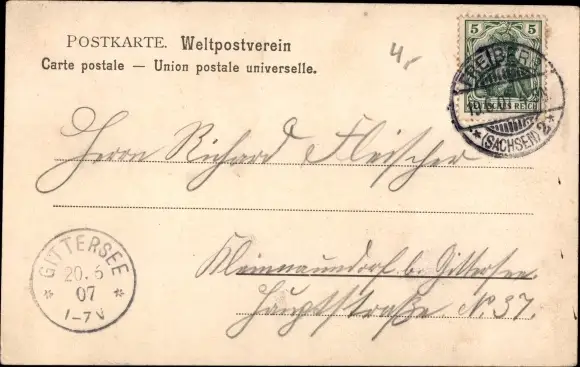 POSTKARTE. Weltpostverein
Carte postale — Union postale universelle.
4,-
5 5
DEUTSCHES REICH
FREIBERG
(SACHSEN) 2
Herrn Richard Fleischer
Kleinnaundorf b. Gittersee
Hauptstraße No. 37.
GITTERSEE
20.5
07
1-7N